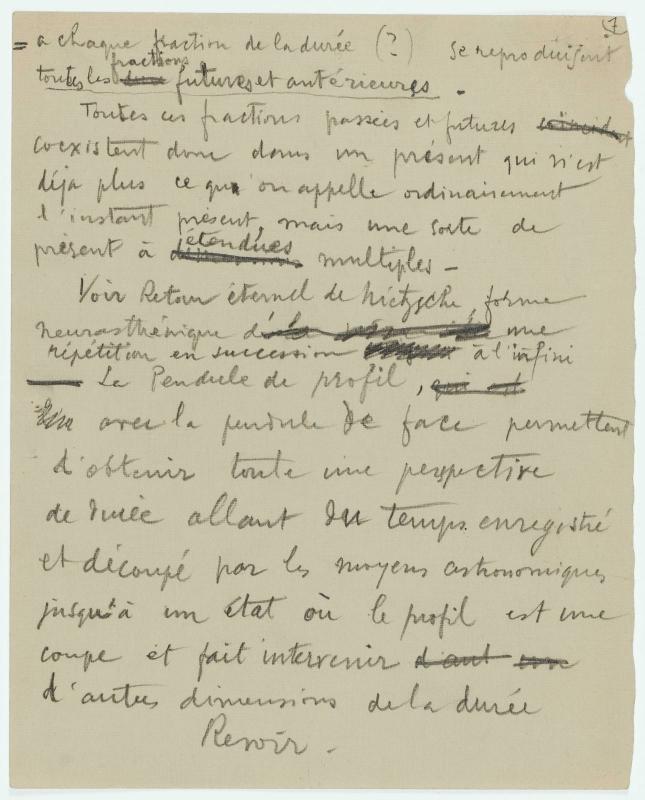 7
= a chaque fraction de la durée (?) se reproduisent
fractions
toutes les futures et antérieures.
Toutes ces fractions passées et futures
coexistent donc dans un présent qui n'est
déja plus ce qu'on appelle ordinairement
l'instant présent, mais une sorte de
étendues
présent à multiples –
Voir Retour éternel de Niétzsche, forme
neurasthénique d' une
répétition en succession à l'infini
— La Pendule de profil, qui est
avec la pendule de face permettant
d'obtenir toute une perspective
de durée allant du temps enregistré
et découpé par les moyens astronomiques
jusqu'à un état où le profil est une
coupe et fait intervenir
d'autres dimensions de la durée
Revoir –